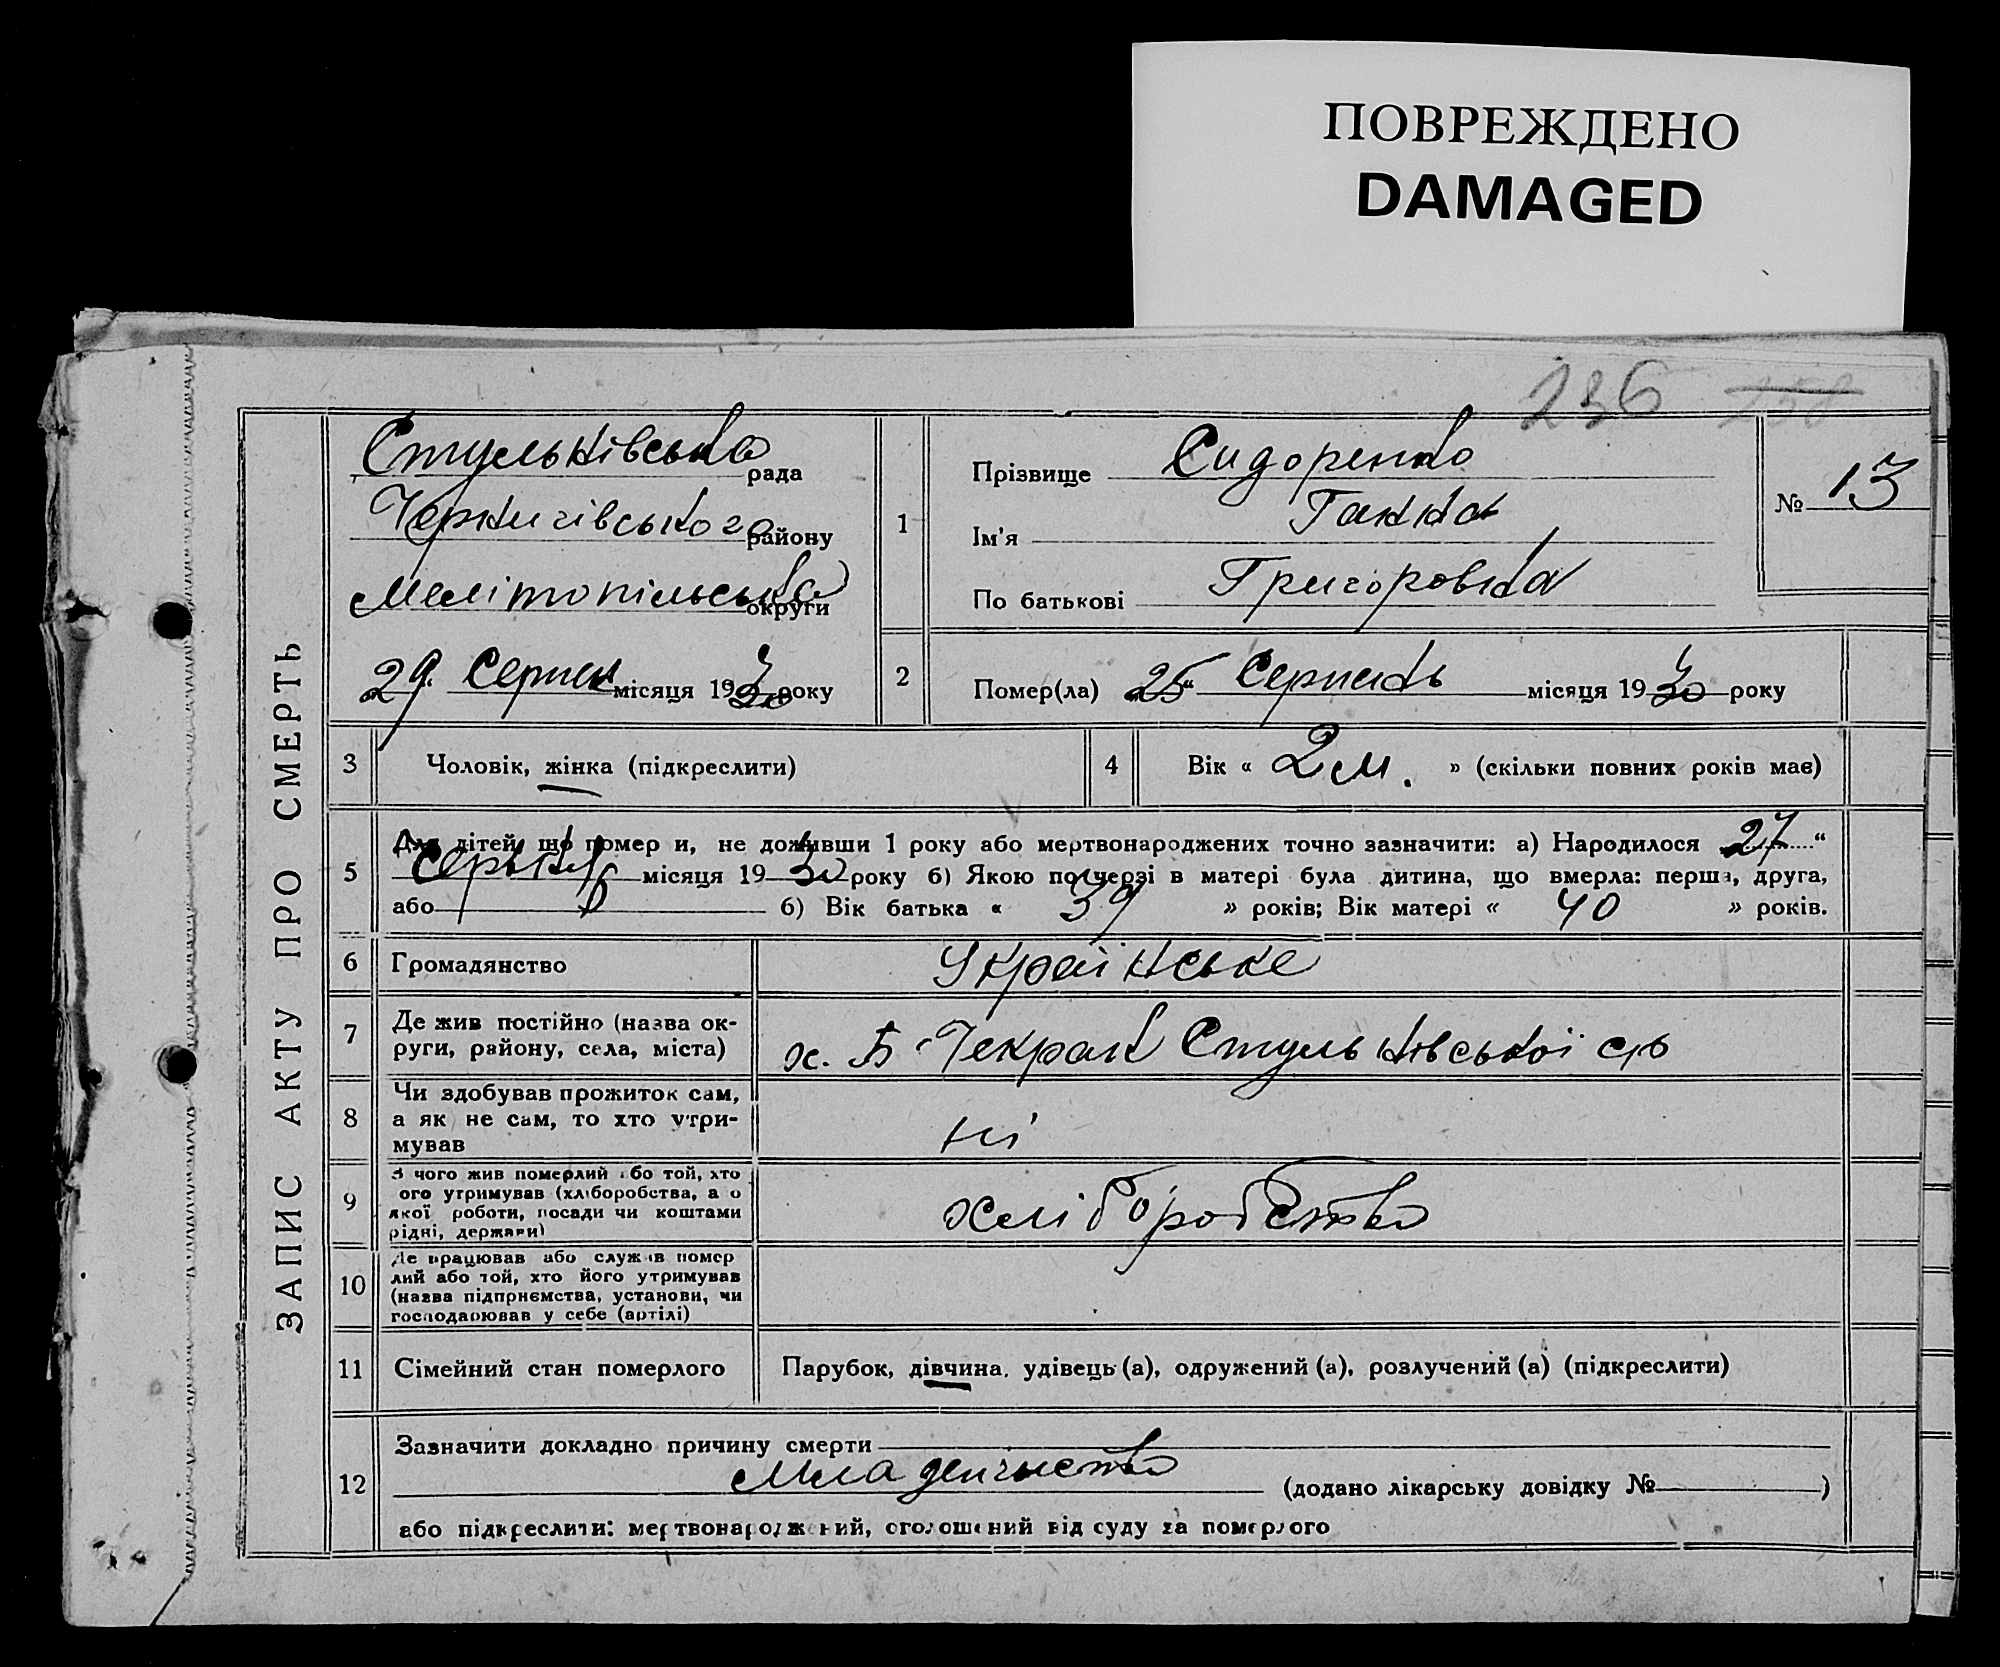 ПОВРЕЖДЕНО
DAMAGED
236
ЗАПИС АКТУ ПРО СМЕРТЬ
Стульнівська рада
Чернигівського району
Мелітопільська округи
29 Серпня місяця 1930 року
1
Прізвище Сидоренко
Ім'я Ганна
По батькові Григоровна
№ 13
2
Помер(ла) 25 " Серпень місяця 1930 року
3 Чоловік, жінка (підкреслити)
4 Вік « 2 м. » (скільки повних років має)
5 Для дітей, що помер и, не доживши 1 року або мертвонароджених точно зазначити: а) Народилося 27 "
місяця 1930 року б) Якою по черзі в матері була дитина, що вмерла: перша, друга,
або б) Вік батька « 39 » років; Вік матері « 40 » років.
6 Громадянство Українське
7 Де жив постійно (назва ок-
руги, району, села, міста)
х. Б-Текрак Стульнівської с/р
8 Чи здобував прожиток сам,
а як не сам, то хто утри-
мував
ні
9 З чого жив померлий або той, хто
ого утримував (хліборобства, а о
якої роботи, посади чи коштами
рідні, держави)
хліборобство
10 Де працював або служив помер
лий або той, хто його утримував
(назва підприємства, установи, чи
господарював у себе (артілі)
11 Сімейний стан померлого Парубок, дівчина, удівець (а), одружений (а), розлучений (а) (підкреслити)
12 Зазначити докладно причину смерти
Младенчиство (додано лікарську довідку № )
або підкреслити: мертвонароджений, оголошений від суду за померлого